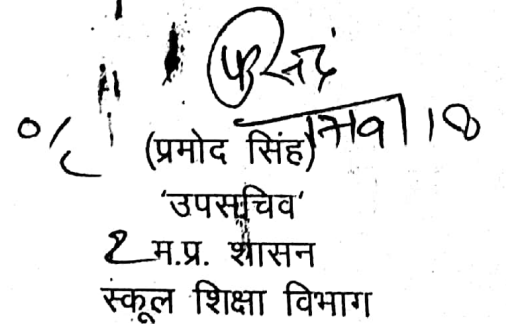 (प्रमोद सिंह)
'उपसचिव'
म.प्र. शासन
स्कूल शिक्षा विभाग